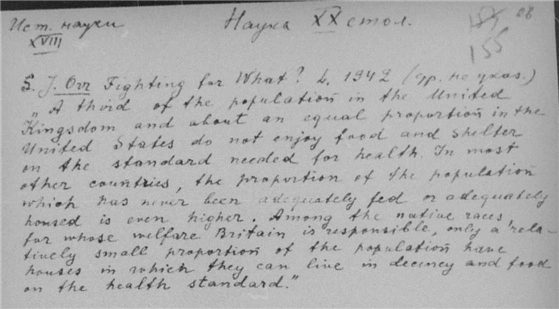 Ист. науки
XVIII
Наука XX стол.
155
S. J. Orr Fighting for What? L. 1942 (гр. не указ.)
„A third of the population in the United
Kingdom and about an equal proportion in the
United States do not enjoy food and shelter
on the standard needed for health. In most
other countries, the proportion of the population
which has never been adequately fed or adequately
housed is even higher. Among the native races
for whose welfare Britain is responsible, only a rela-
tively small proportion of the population have
houses in which they can live in decency and food
on the health standard."